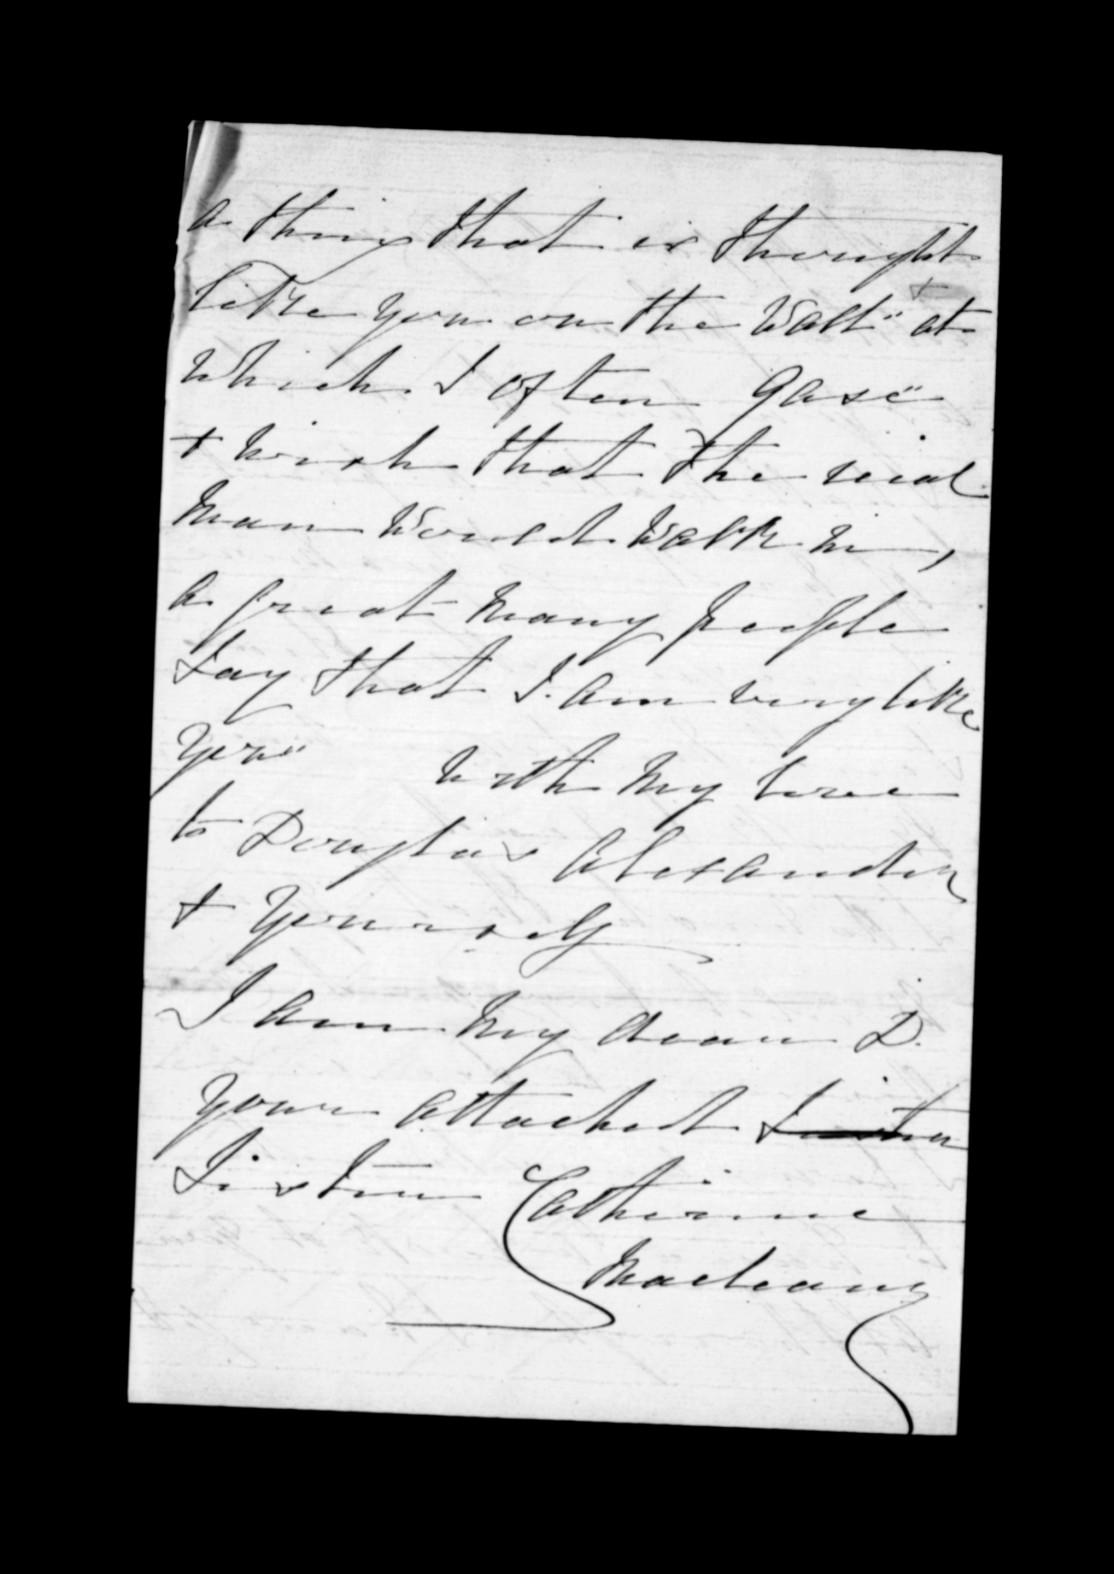 a thing that is thought
like you on the Wall" at
which I often gase"
& wish that the real
Man would Walk in,
a great many people
Say that I am very like
you" with My love
to Douglas Alexander
& yourself
I am My dear D.
your attached Sister
Sister Catherine
Maclean